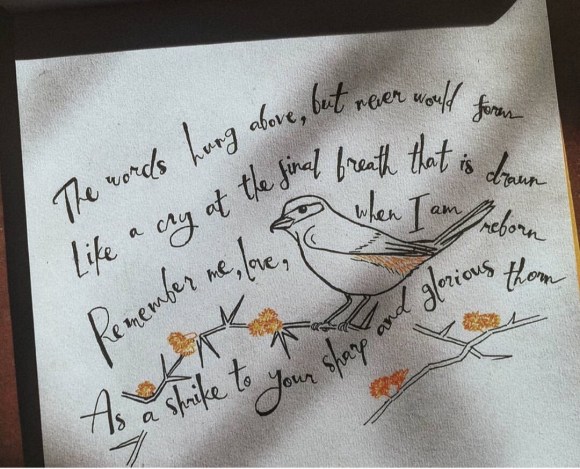 The words hung above, but never would form
Like a cry at the final breath that is drawn
Remember me, love, when I am reborn
As a shrike to your sharp and glorious thorn